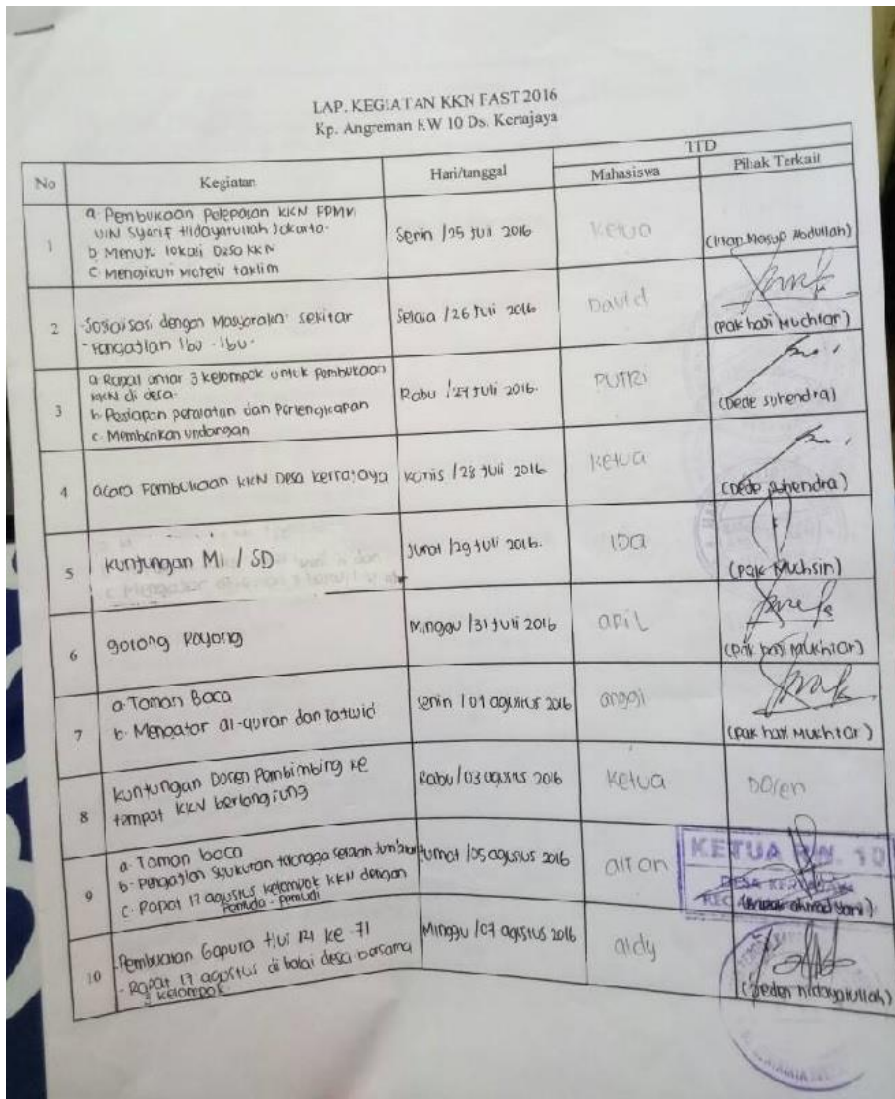 LAP. KEGIATAN KKN FAST 2016
Kp. Angreman RW 10 Ds. Kertajaya
No Kegiatan Hari/tanggal TTD
Mahasiswa Pihak Terkait
1 a. Pembukaan Pelepasan KKN
UIN Syarif Hidayatullah Jakarta.
b. lokasi Desa KKN
c. Mengikuti Materi taklim
Senin /25 Juli 2016
Ketua
2 - Sosialisasi dengan Masyarakat sekitar
- Pengajian Ibu-Ibu.
Selasa /26 Juli 2016
David
(pak haji Muchtar)
3 a. Rapat antar 3 kelompok untuk pembukaan
KKN di desa.
b. Persiapan peralatan dan Perlengkapan
c. Memberikan undangan
Rabu /27 Juli 2016.
PUTRI
(Dede suhendra)
4 acara Pembukaan KKN Desa kertajaya
Kamis /28 Juli 2016
Ketua
(Dede suhendra)
5 kunjungan MI / SD
Jumat /29 Juli 2016.
Ida
(pak Muhsin)
6 gotong Royong
Minggu /31 Juli 2016
april
(pak haji Mukhtar)
7 a. Taman Baca
b. Mengajar al-quran dan Tajwid
Senin /01 agustus 2016
anggi
(pak haji Mukhtar)
8 kunjungan Dosen Pembimbing ke
tempat KKN berlangsung
Rabu /03 agustus 2016
Ketua
Dosen
9 a. Taman baca
b. Pengajian Syukuran tetangga
c. Rapat 17 agustus kelompok KKN dengan
Pemuda - pemudi
Jumat /05 agustus 2016
KETUA RW. 10
10 - Pembuatan Gapura HUT RI ke 71
- Rapat 17 agustus di balai desa bersama
3 kelompok.
Minggu /07 agustus 2016
aldy